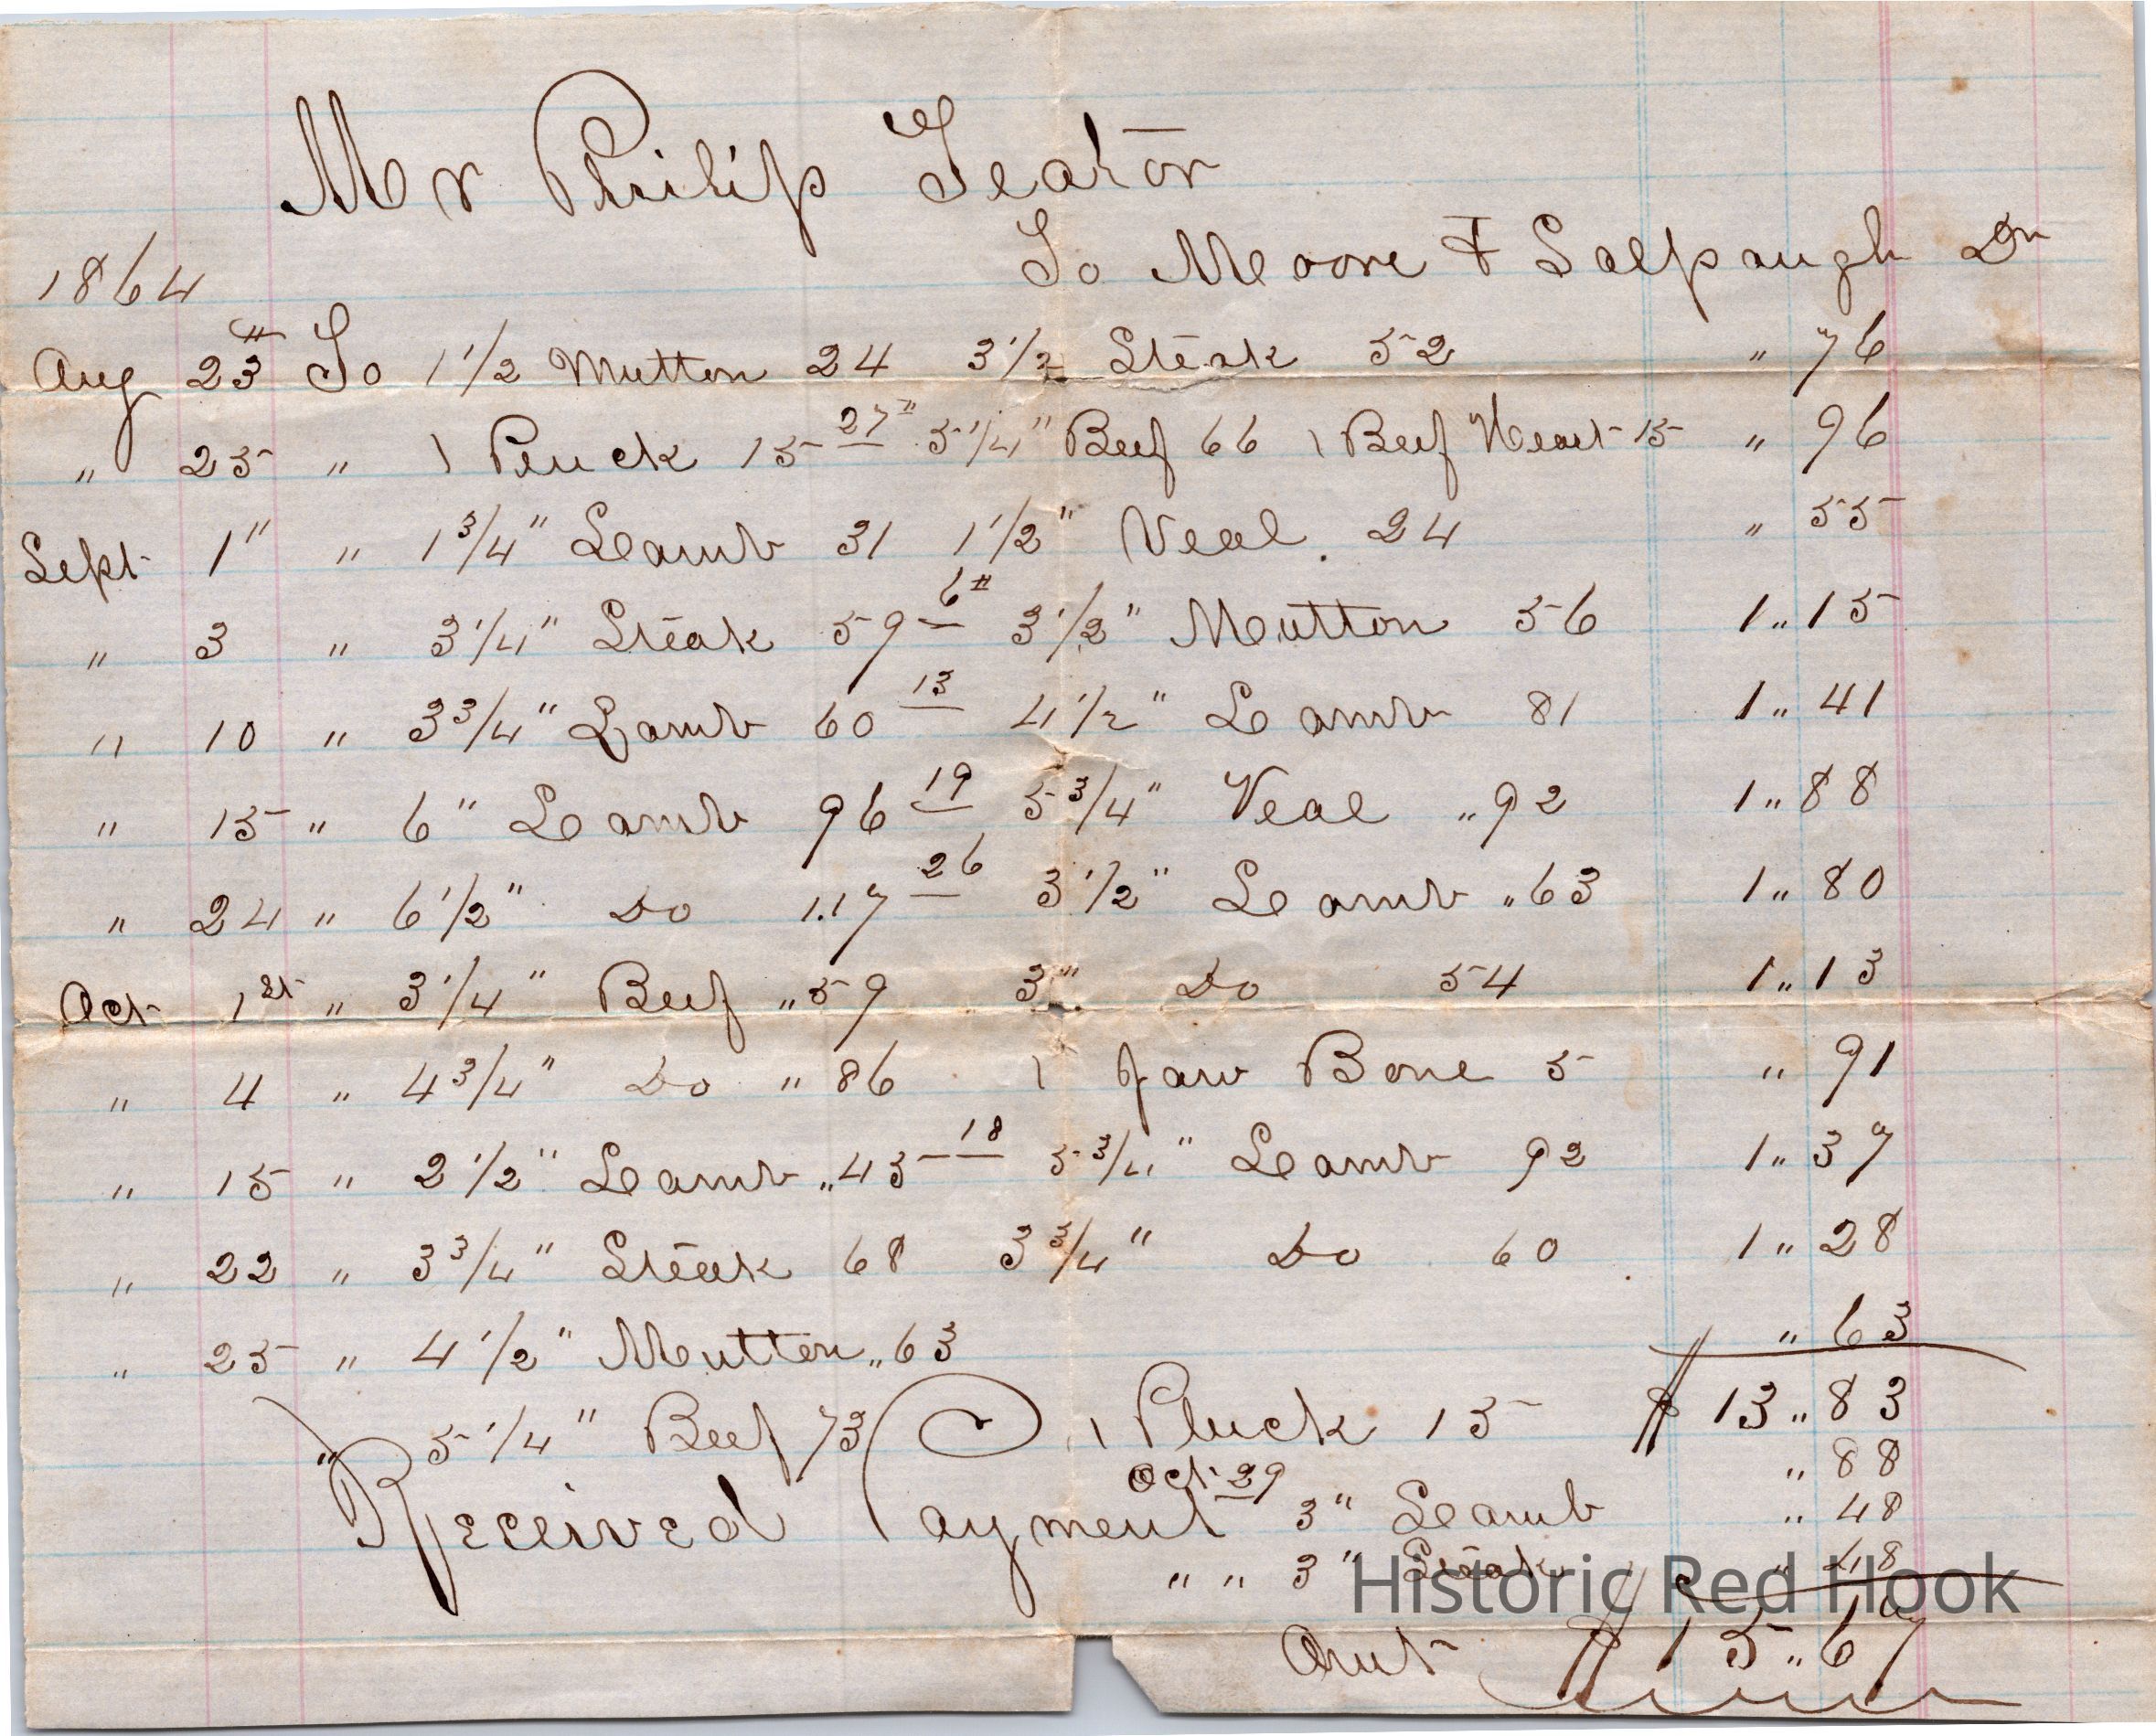 Mr Philip Teator
To Moore & Salpaugh Dr
1864
Aug 23" To 1 1/2 Mutton 24 3 1/2 Steak 52 " 76
" 25 " 1 Pluck 15 27" 5 1/4" Beef 66 1 Beef Heart 15 " 96
Sept 1" " 1 3/4" Lamb 31 1 1/2" Veal. 24 " 55
" 3 " 3 1/4" Steak 59 6" 3 1/2" Mutton 56 1 " 15
" 10 " 3 3/4" Lamb 60 13 4 1/2" Lamb 81 1 " 41
" 15 " 6" Lamb 96 19 5 3/4" Veal " 92 1 " 88
" 24 " 6 1/2" Do 1.17 26 3 1/2" Lamb " 63 1 " 80
Oct 1st " 3 1/4" Beef " 59 3" Do 54 1 " 13
" 4 " 4 3/4" Do " 86 1 Jaw Bone 5 " 91
" 15 " 2 1/2" Lamb " 45 18 5 3/4" Lamb 92 1 " 37
" 22 " 3 3/4" Steak 68 3 3/4" Do 60 1 " 28
" 25 " 4 1/2" Mutton " 63 " 63
" 5 1/4" Beef 73 1 Pluck 15 $ 13 " 83
" 88
Received Payment Oct 29 3" Lamb " 48
" " 3" Steak " 48
Historic Red Hook
Amt $ 15 " 67